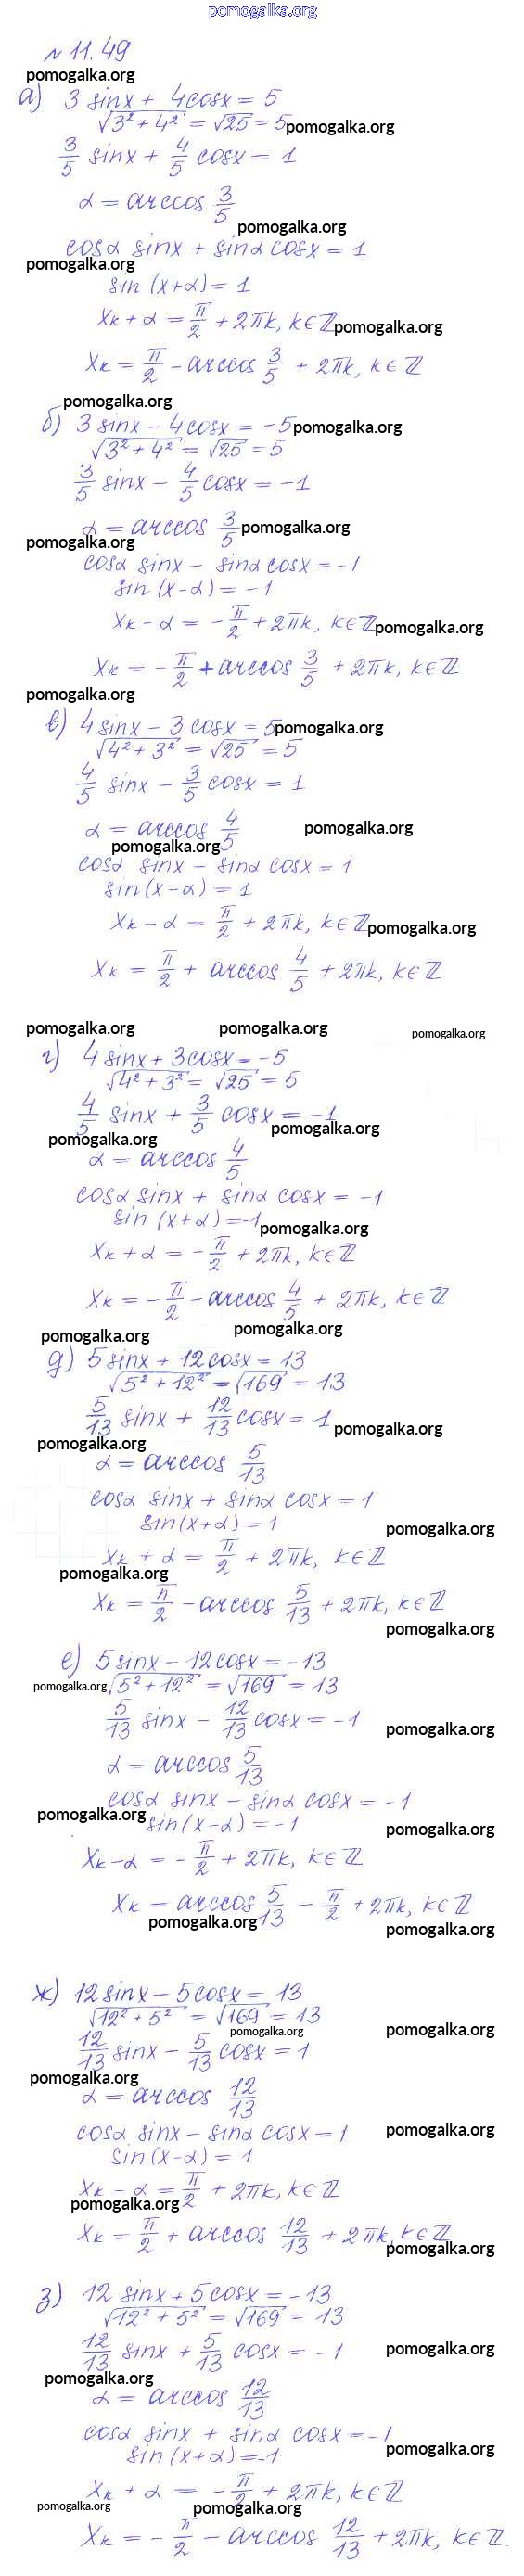 pomogalka.org
№ 11.49
pomogalka.org
а) 3 sinx + 4cosx = 5
√3² + 4² = √25 = 5 pomogalka.org
3/5 sinx + 4/5 cosx = 1
α = arccos 3/5
pomogalka.org
cosα sinx + sinα cosx = 1
pomogalka.org
sin (x+α) = 1
xₖ + α = π/2 + 2πk, k∈ℤ pomogalka.org
xₖ = π/2 - arccos 3/5 + 2πk, k∈ℤ
pomogalka.org
б) 3 sinx - 4cosx = -5 pomogalka.org
√3² + 4² = √25 = 5
3/5 sinx - 4/5 cosx = -1
α = arccos 3/5 pomogalka.org
pomogalka.org
cosα sinx - sinα cosx = -1
sin (x-α) = -1
xₖ - α = -π/2 + 2πk, k∈ℤ pomogalka.org
xₖ = -π/2 + arccos 3/5 + 2πk, k∈ℤ
pomogalka.org
в) 4 sinx - 3 cosx = 5 pomogalka.org
√4² + 3² = √25 = 5
4/5 sinx - 3/5 cosx = 1
α = arccos 4/5 pomogalka.org
pomogalka.org
cosα sinx - sinα cosx = 1
sin(x-α) = 1
xₖ - α = π/2 + 2πk, k∈ℤ pomogalka.org
xₖ = π/2 + arccos 4/5 + 2πk, k∈ℤ
pomogalka.org pomogalka.org pomogalka.org
г) 4 sinx + 3cosx = -5
√4² + 3² = √25 = 5
4/5 sinx + 3/5 cosx = -1
pomogalka.org
pomogalka.org
α = arccos 4/5
cosα sinx + sinα cosx = -1
sin (x+α) = -1 pomogalka.org
xₖ + α = -π/2 + 2πk, k∈ℤ
xₖ = -π/2 - arccos 4/5 + 2πk, k∈ℤ
pomogalka.org
pomogalka.org
д) 5 sinx + 12cosx = 13
√5² + 12² = √169 = 13
5/13 sinx + 12/13 cosx = 1 pomogalka.org
pomogalka.org
α = arccos 5/13
cosα sinx + sinα cosx = 1
sin(x+α) = 1 pomogalka.org
xₖ + α = π/2 + 2πk, k∈ℤ
pomogalka.org
xₖ = π/2 - arccos 5/13 + 2πk, k∈ℤ
pomogalka.org
е) 5 sinx - 12cosx = -13
pomogalka.org √5² + 12² = √169 = 13
5/13 sinx - 12/13 cosx = -1 pomogalka.org
α = arccos 5/13
cosα sinx - sinα cosx = -1
pomogalka.org sin(x-α) = -1 pomogalka.org
xₖ - α = -π/2 + 2πk, k∈ℤ
xₖ = arccos 5/13 - π/2 + 2πk, k∈ℤ
pomogalka.org pomogalka.org
ж) 12 sinx - 5cosx = 13
√12² + 5² = √169 = 13
pomogalka.org pomogalka.org
12/13 sinx - 5/13 cosx = 1
pomogalka.org
α = arccos 12/13
cosα sinx - sinα cosx = 1 pomogalka.org
sin(x-α) = 1
xₖ - α = π/2 + 2πk, k∈ℤ
pomogalka.org
xₖ = π/2 + arccos 12/13 + 2πk, k∈ℤ
pomogalka.org
з) 12 sinx + 5cosx = -13
√12² + 5² = √169 = 13
12/13 sinx + 5/13 cosx = -1 pomogalka.org
pomogalka.org
α = arccos 12/13
cosα sinx + sinα cosx = -1
sin(x+α) = -1 pomogalka.org
xₖ + α = -π/2 + 2πk, k∈ℤ
pomogalka.org pomogalka.org
xₖ = -π/2 - arccos 12/13 + 2πk, k∈ℤ.